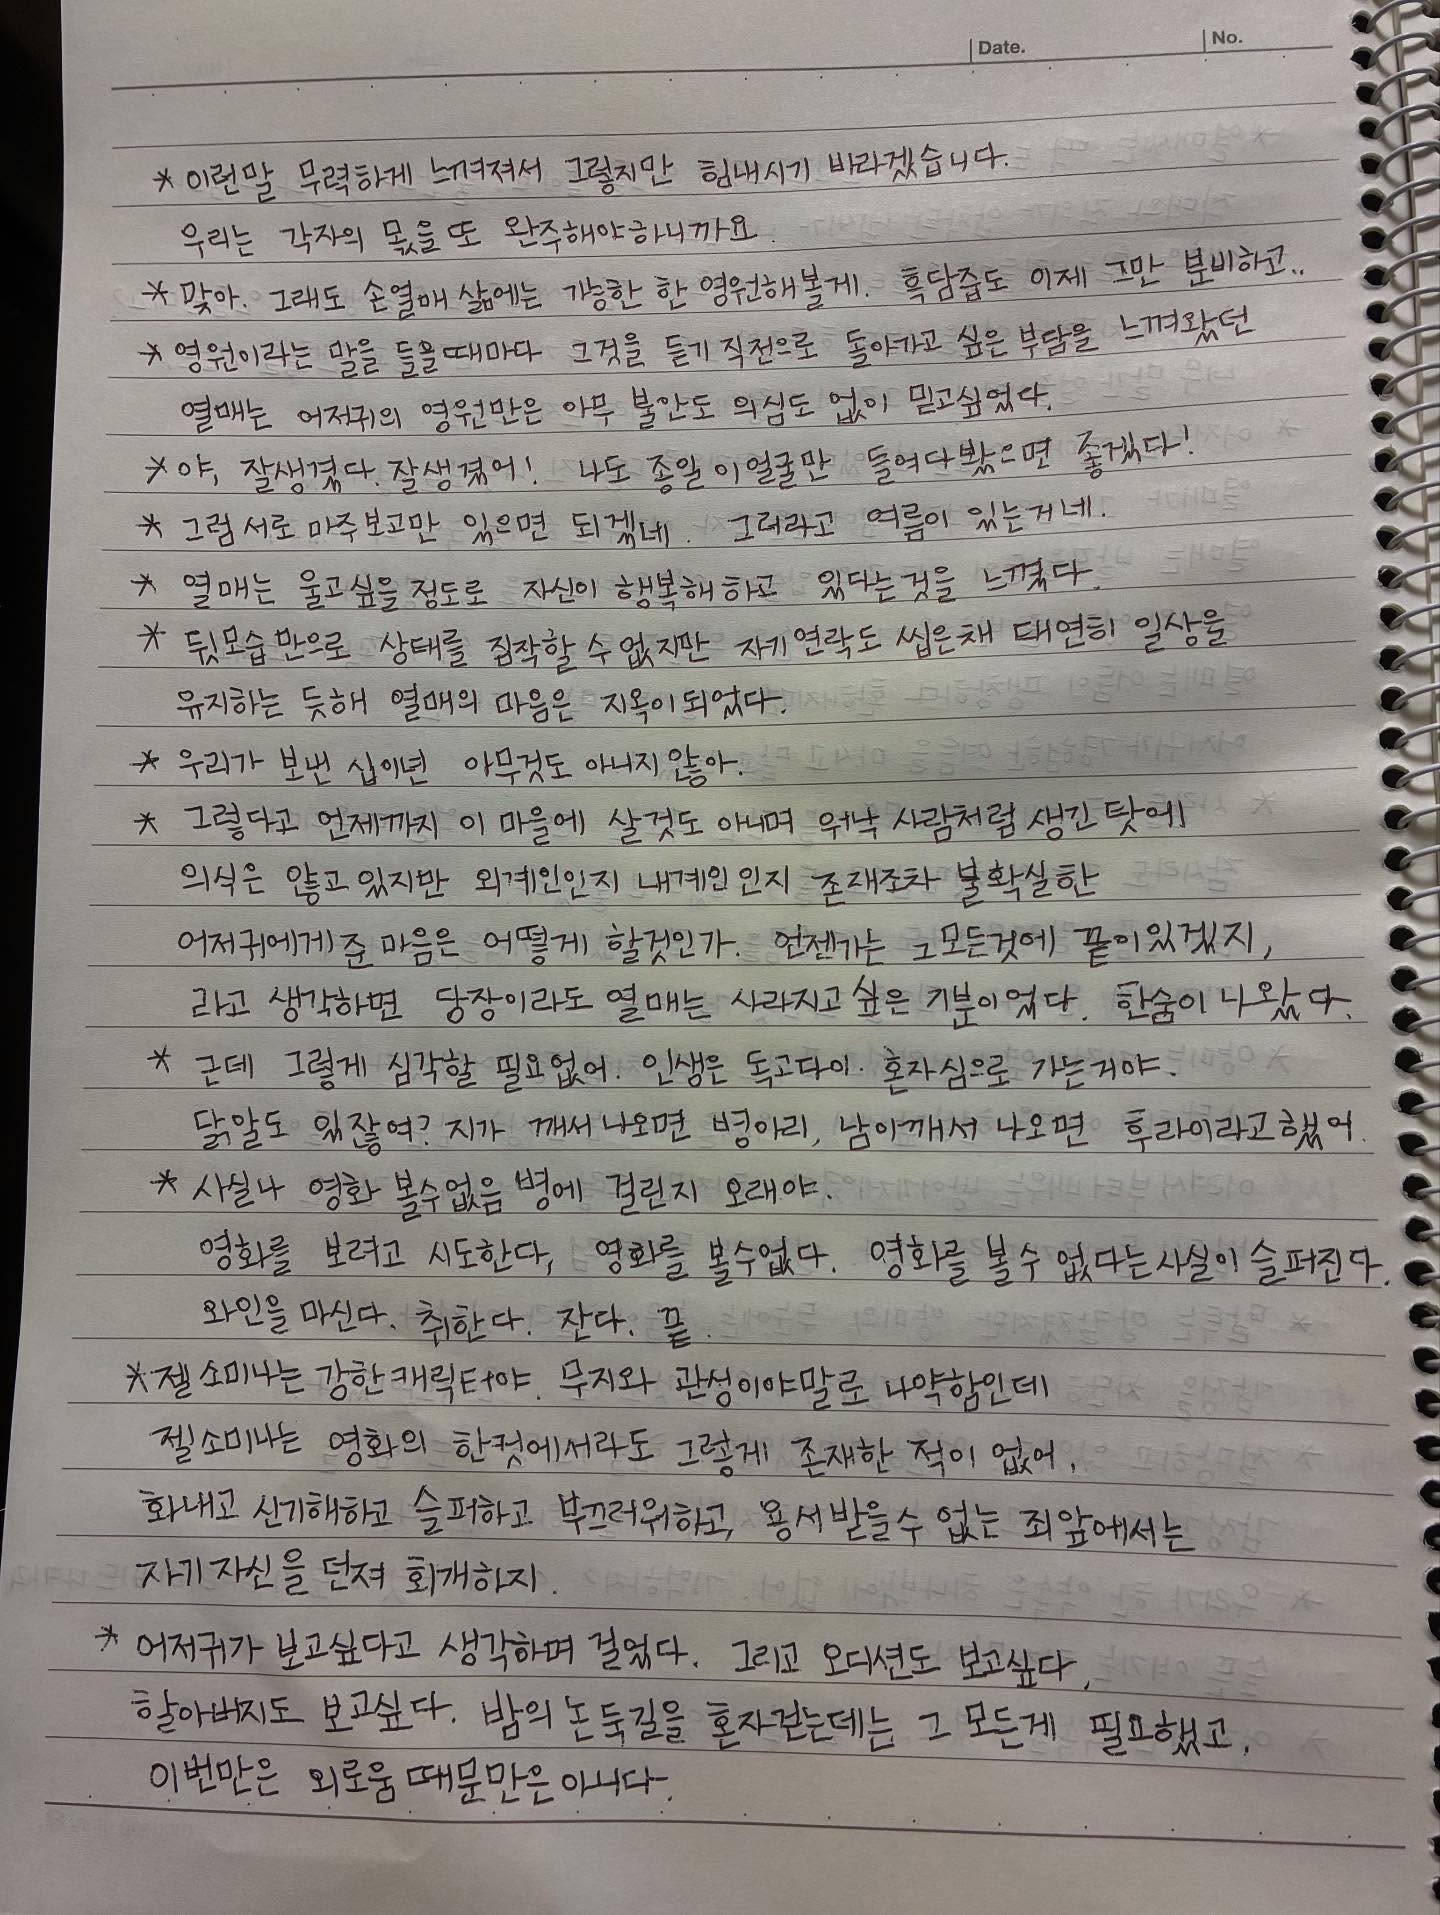 Date.
No.
* 이런말 무력하게 느껴져서 그렇지만 힘내시기 바라겠습니다.
우리는 각자의 몫을 또 완주해야하니까요.
* 맞아. 그래도 손열매 삶에는 가능한 한 영원해볼게. 흑담즙도 이제 그만 분비하고..
* 영원이라는 말을 들을때마다 그것을 듣기 직전으로 돌아가고 싶은 부담을 느껴왔던
열매는 어저귀의 영원만은 아무 불안도 의심도 없이 믿고싶었다.
* 야, 잘생겼다. 잘생겼어! 나도 종일 이얼굴만 들여다봤으면 좋겠다!
* 그럼 서로 마주보고만 있으면 되겠네. 그러라고 여름이 있는거네.
* 열매는 울고싶을정도로 자신이 행복해하고 있다는것을 느꼈다.
* 뒷모습만으로 상태를 짐작할 수 없지만 자기연락도 씹은채 태연히 일상을
유지하는 듯해 열매의 마음은 지옥이되었다.
* 우리가 보낸 십이년 아무것도 아니지 않아.
* 그렇다고 언제까지 이 마을에 살것도 아니며 워낙 사람처럼 생긴 탓에
의식은 않고 있지만 외계인인지 내계인인지 존재조차 불확실한
어저귀에게 준 마음은 어떻게 할것인가. 언젠가는 그모든것에 끝이있겠지,
라고 생각하면 당장이라도 열매는 사라지고싶은 기분이었다. 한숨이 나왔다.
* 근데 그렇게 심각할 필요없어. 인생은 독고다이. 혼자심으로 가는거야.
닭알도 있잖여? 지가 깨서 나오면 병아리, 남이깨서 나오면 후라이라고했어.
* 사실나 영화 볼수없음 병에 걸린지 오래야.
영화를 보려고 시도한다, 영화를 볼수없다. 영화를 볼수 없다는사실이 슬퍼진다.
와인을 마신다. 취한다. 잔다. 끝.
* 젤소미나는 강한캐릭터야. 무지와 관성이야말로 나약함인데
젤소미나는 영화의 한컷에서라도 그렇게 존재한 적이 없어.
화내고 신기해하고 슬퍼하고 부끄러워하고, 용서받을수 없는 죄앞에서는
자기자신을 던져 회개하지.
* 어저귀가 보고싶다고 생각하며 걸었다. 그리고 오디션도 보고싶다,
할아버지도 보고싶다. 밤의 논둑길을 혼자걷는데는 그 모든게 필요했고,
이번만은 외로움때문만은아니다.